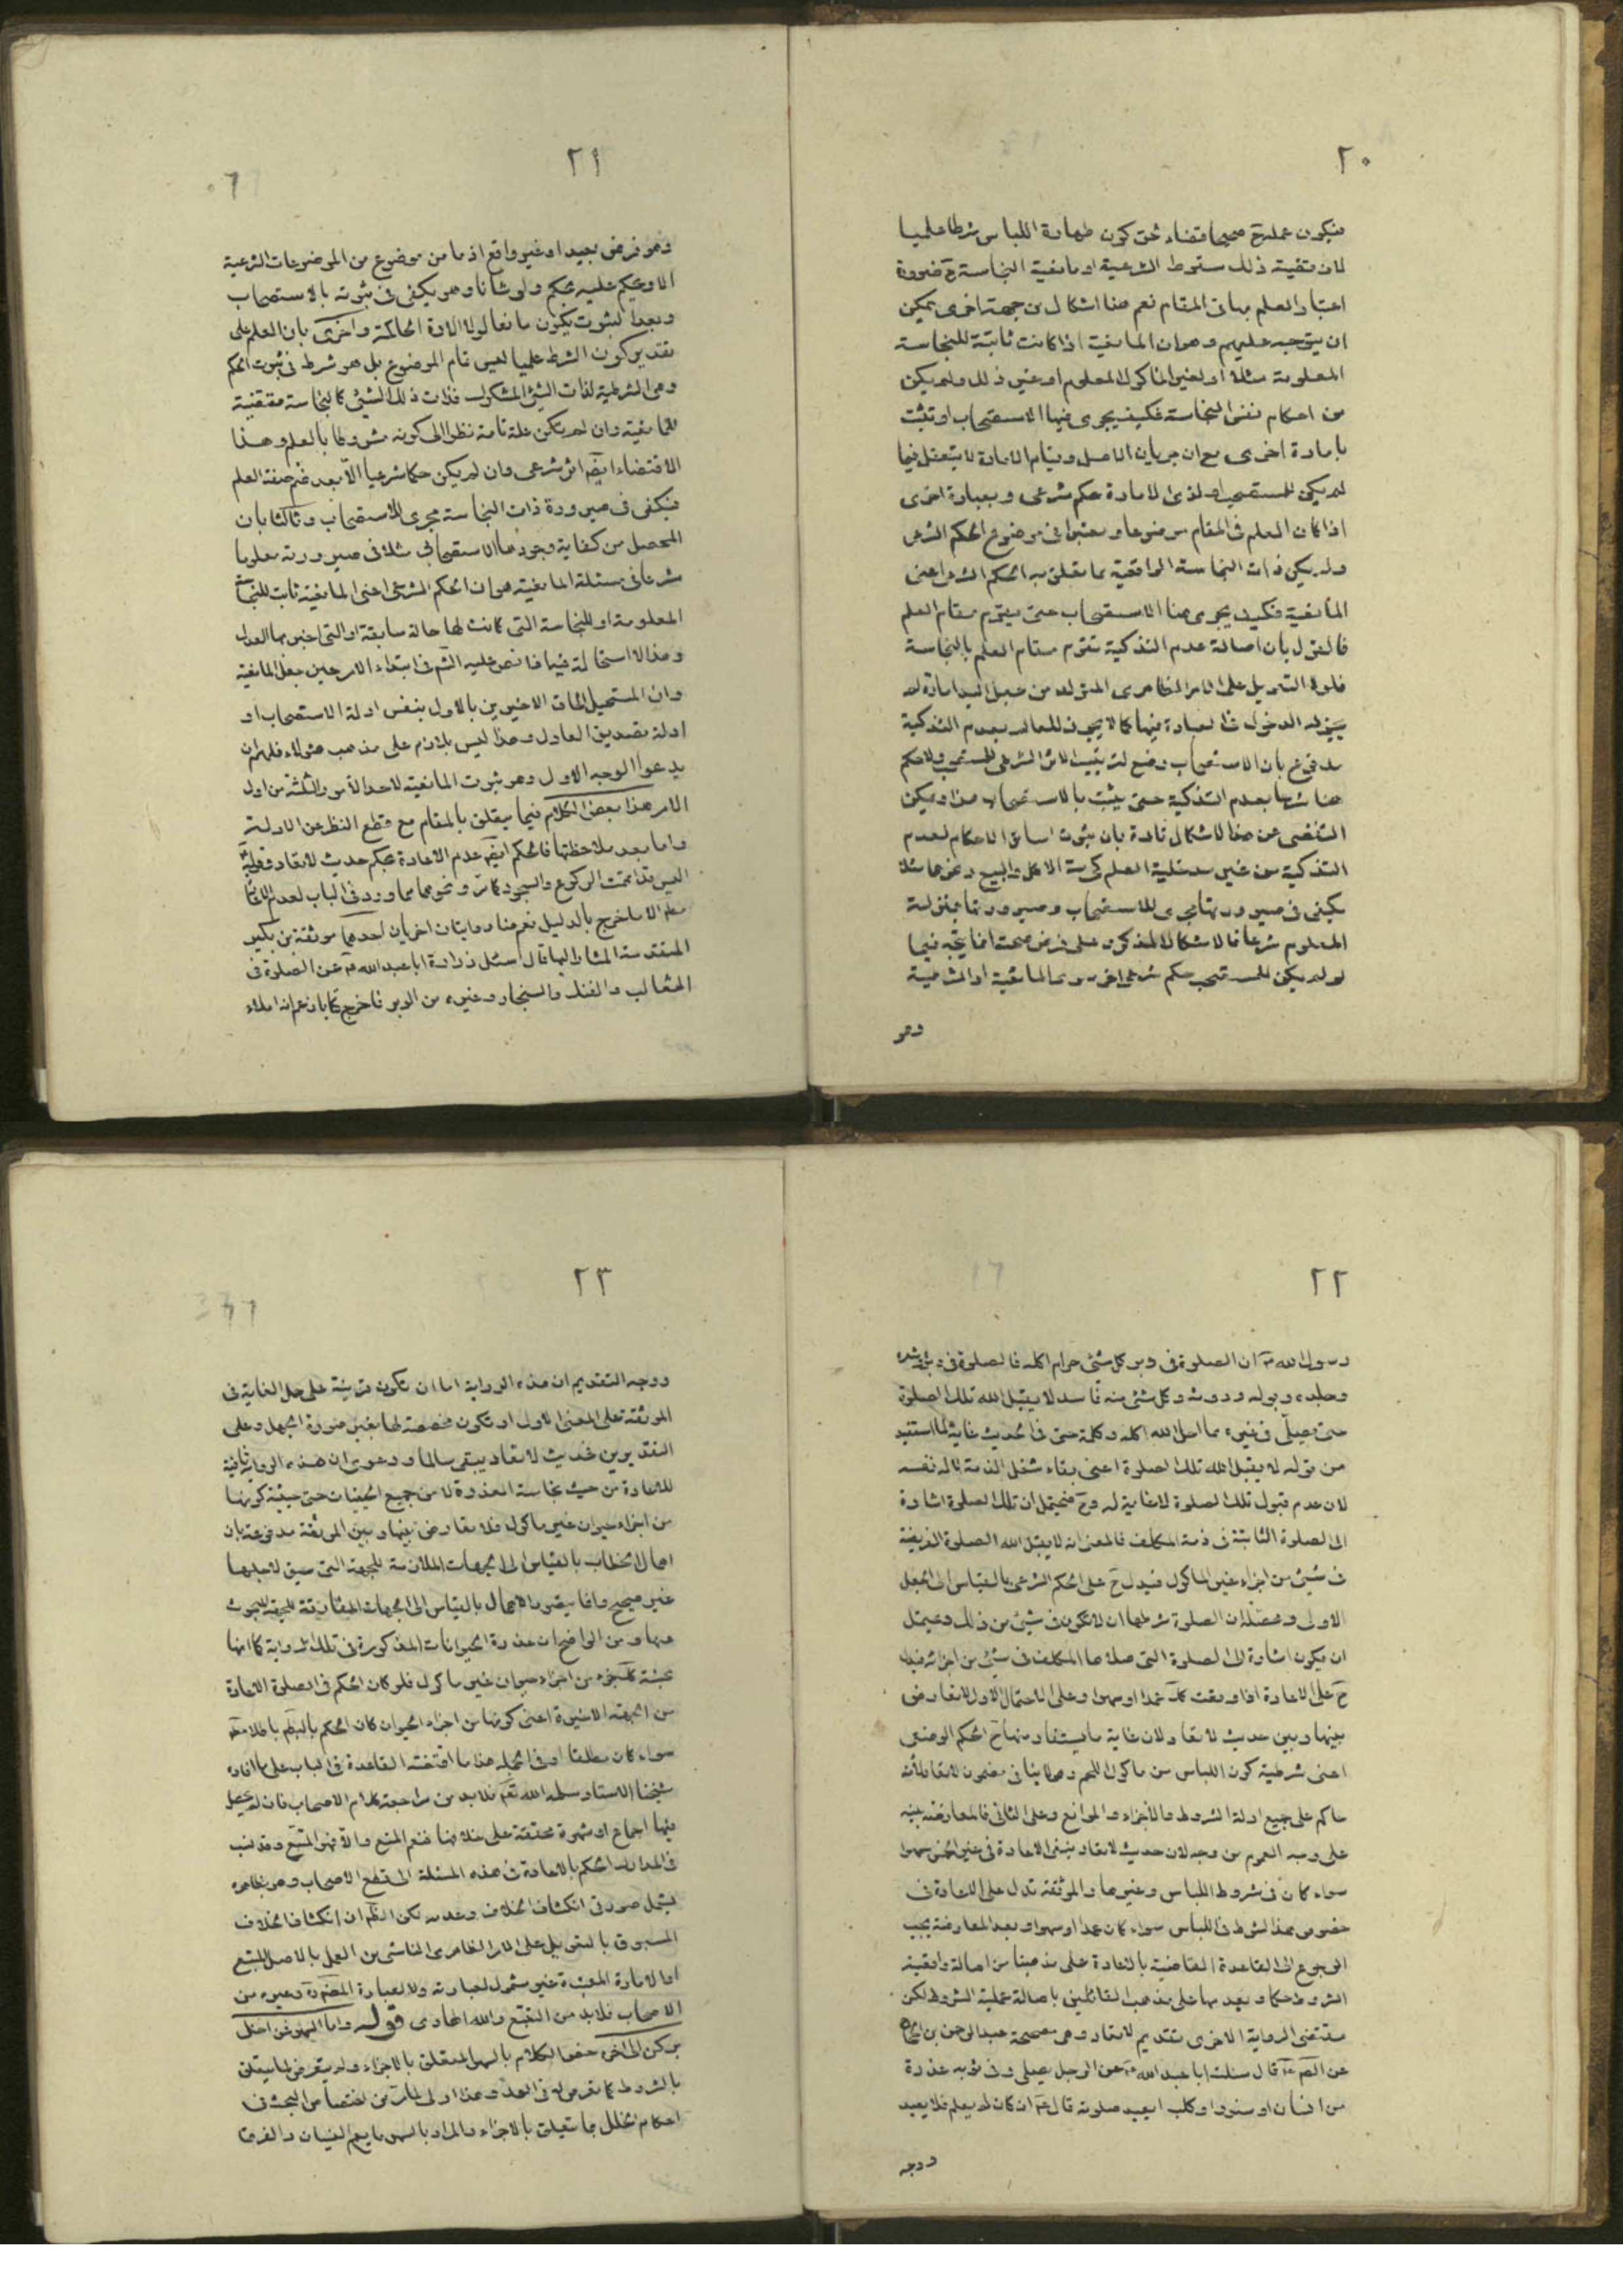 ٢٠
فيكون عمله ح صحيحا قضاء لحق كون طهارة اللباس شرطا علميا
لان قضية ذلك سقوط الشرعية او مانعية النجاسة ح ضرورة
اعتبار العلم بها فى المقام نعم هنا اشكال من جهة اخرى يمكن
ان يتوجه عليهم وهو ان المانعية اذا كانت ثابتة للنجاسة
المعلومة مثلا او لغير الماكول المعلوم او غير ذلك ولم يكن
من احكام نفس النجاسة فكيف يجرى فيها الاستصحاب او تثبت
بامارة اخرى مع ان جريان الاصل وقيام الامارة لا يتعقل فيما
لم يكن للمستصحب او لذى الامارة حكم شرعى وبعبارة اخرى
اذا كان العلم فى المقام موضوعا ومعتبرا فى موضوع الحكم الشرعى
ولم يكن ذات النجاسة الواقعية مما يتعلق به الحكم الشرعى اعنى
المانعية فكيف يجرى هنا الاستصحاب حتى يقوم مقام العلم
فالقول بان اصالة عدم التذكية تقوم مقام العلم بالنجاسة
فلولا التعويل على الامر الظاهرى المتولد من جعل اليد امارة لم
يجز له الدخول فى العبادة فيها كما لا يجوز للعالم بعدم التذكية
مدفوع بان الاستصحاب وضع لترتيب الاثر الشرعى للمستصحب ولا حكم
هنا شرعا بعدم التذكية حتى يثبت بالاستصحاب هذا ويمكن
التفصى عن هذا الاشكال تارة بان ثبوت سائر الاحكام لعدم
التذكية من غير مدخلية العلم كحرمة الاكل والبيع ونحوهما مثلا
يكفى فى صيرورتها مجرى للاستصحاب وصيرورتها بمنزلة
المعلوم شرعا فالاشكال المذكور على فرض صحته انما يتجه فيما
لو لم يكن للمستصحب حكم شرعى اخر سوى المانعية او الشرطية
وهو
٢١
وهو فرض بعيد او غير واقع اذ ما من موضوع من الموضوعات الشرعية
الا ويحكم عليه بحكم ولو شأنا وهو يكفى فى ثبوته بالاستصحاب
وبعد الثبوت يكون مانعا لولا الادلة الحاكمة واخرى بان العلم على
تقدير كون الشرط علميا ليس تمام الموضوع بل هو شرط فى ثبوت الحكم
وهى الشرطية لذات الشئ المشكوك فذات ذلك الشئ كالنجاسة مقتضية
للمانعية وان لم يكن علة تامة نظرا الى كونه مشروطا بالعلم وهذا
الاقتضاء ايضا اثر شرعى وان لم يكن حكما شرعيا الا بعد ضم صفة العلم
فيكفى فى صيرورة ذات النجاسة مجرى للاستصحاب وثالثا بان
المحصل من كفاية وجودها الاستصحابى مثلا فى صيرورته معلوما
شرعا فى مسئلة المانعية هو ان الحكم الشرعى اعنى المانعية ثابت للنجاسة
المعلومة او للنجاسة التى كانت لها حالة سابقة او التى اخبر بها العدل
وهذا لا استحالة فيما اذا نص عليه الش فى ابتداء الامر حين جعل المانعية
وان المستحيل الحاق الاخيرين بالاول بنفس ادلة الاستصحاب او
ادلة تصديق العادل وهذا ليس بلازم على مذهب هؤلاء فلهم ان
يدعوا الوجه الاول وهو ثبوت المانعية لاحد الامور الثلثة من اول
الامر هذا بعض الكلام فيما يتعلق بالمقام مع قطع النظر عن الادلة
واما بعد ملاحظتها فالحكم ايضا عدم الاعادة بحكم حديث لا تعاد وقوله
اليس قد اتممت الركوع والسجود كما مر ونحوهما مما ورد فى الباب لعدم
الا ما خرج بالدليل نعم هنا روايتان اخريان احدهما موثقة بن بكير
المتقدمة المشار اليها قال اسئل زرارة ابا عبد الله ع عن الصلوة فى
الثعالب والفنك والسنجاب وغيره من الوبر فاخرج كتابا زعم انه املاء
٢٢
رسول الله ص ان الصلوة فى وبر كل شئ حرام اكله فالصلوة فى وبره وشعره
وجلده وبوله وروثه وكل شئ منه فاسد لا يقبل الله تلك الصلوة
حتى يصلى فى غيره مما احل الله اكله وكلمة حتى فى الحديث غاية لما استفيد
من قوله لا يقبل الله تلك الصلوة اعنى بقاء شغل الذمة لا له نفسه
لان عدم قبول تلك الصلوة لا غاية له وح فيحتمل ان تلك الصلوة اشارة
الى الصلوة الثابتة فى ذمة المكلف فالمعنى انه لا يقبل الله الصلوة الفريضة
فى شئ من اجزاء غير الماكول فيدل ح على الحكم الشرعى بالقياس الى الجعل
الاولى ومحصله ان الصلوة شرطها ان لا تكون فى شئ من ذلك ويحتمل
ان يكون اشارة الى الصلوة التى صلاها المكلف فى شئ من اجزائه فيدل
ح على الاعادة اذا وقعت كك عمدا او سهوا وعلى الاحتمال الاول لا تعارض
بينها وبين حديث لا تعاد لان غاية ما يستفاد منها ح الحكم الوضعى
اعنى شرطية كون اللباس من ماكول اللحم وهو لا ينافى مضمون لا تعاد لانه
حاكم على جميع ادلة الشروط والاجزاء والموانع وعلى الثانى فالمعارضة بينه
على وجه العموم من وجه لان حديث لا تعاد ينفى الاعادة فى غير الخمس سهوا
سواء كان فى شروط اللباس وغيرها والموثقة تدل على الاعادة فى
خصوص هذا الشرط فى اللباس سواء كان عمدا او سهوا وبعد المعارضة يجب
الرجوع الى القاعدة القاضية بالاعادة على مذهبنا من اصالة واقعية
الشروط حكما وبعدمها على مذهب القائلين باصالة علمية الشروط لكن
مقتضى الرواية الاخرى تقديم لا تعاد وهى صحيحة عبد الرحمن بن
عن الص ع قال سئلت ابا عبد الله ع عن الرجل يصلى وفى ثوبه عذرة
من انسان او سنور او كلب ايعيد صلوته قال ع ان كان لم يعلم فلا يعيد
ووجه
٢٣
ووجه التقديم ان هذه الرواية اما ان تكون قرينة على حمل الغاية فى
الموثقة على المعنى الاول او تكون مخصصة لها بغير صورة الجهل وعلى
التقديرين فحديث لا تعاد يبقى سالما ودعوى ان هذه الرواية نافية
للاعادة من حيث نجاسة العذرة لا من جميع الحيثيات حتى حيثية كونها
من اجزاء حيوان غير ماكول فلا تعارض بينها وبين الموثقة مدفوعة بان
اهمال الخطاب بالقياس الى الجهات الملازمة للجهة التى سيق لاجلها
غير صحيح وانما يتصور الاهمال بالقياس الى الجهات المفارقة للجهة المبحوث
عنها ومن الواضح ان عذرة الحيوانات المذكورة فى تلك الرواية كما انها
نجسة كك جزء من اجزاء حيوان غير ماكول فلو كان الحكم فى الصلوة الاعادة
من الجهة الاخيرة اعنى كونها من اجزاء الحيوان كان الحكم بالعدم باطلا مط
سواء كان مطلقا او فى الجملة هذا ما اقتضته القاعدة فى الباب على ما افاده
شيخنا الاستاد سلمه الله تع فلا بد من مراجعة كلام الاصحاب فان لم يحصل
فيها اجماع او شهرة محققة على خلافها فنعم المنع والا فهو المتبع وقد نسب
فى المدارك الحكم بالاعادة فى هذه المسئلة الى قطع الاصحاب وهو بظاهره
يشمل صورتى انكشاف الخلاف وعدمه لكن الظ ان انكشاف الخلاف
المسبوق بالتعويل على الامر الظاهرى الناشئ من العمل بالاصل المتبع
او الامارة المعتبرة غير مشمول لعبارته ولا لعبارة وغيره من
الاصحاب فلا بد من التتبع والله الهادى قوله واما السهو فمن اخل
بركن الى اخره خص الكلام بالسهو المتعلق بالاجزاء ولم يتعرض لما يتعلق
بالشروط كما تعرض له فى العمد وهذا اولى لما مر من اختصاص البحث فى
احكام الخلل بما يتعلق بالاجزاء والمراد بالسهو ما يعم النسيان والفرق